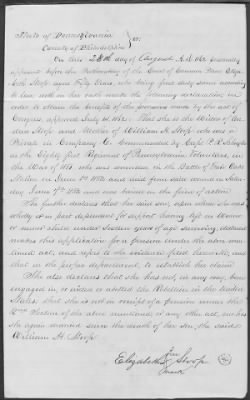 State of Pennsylvania
County of Philadelphia } ss:
On this 28th day of August A.D. 1862 personally
appeared before the Prothonotary of the Court of Common Pleas Eliza-
beth Stoop aged Fifty Years, who being first duly sworn according
to law, doth on her oath make the following declaration, in
order to obtain the benefits of the pensions made by the act of
Congress, approved July 14, 1862: That she is the Widow of
Stoop and Mother of William H. Stoop who was a
Private in Company C. Commanded by Capt
in the Eighty first Regiment of Pennsylvania Volunteers, in
the War of 1861 who was wounded in the Battle of Fair Oaks
on June 1st 1862 and died from said wound on
day June 7th 1862 and was buried in the
She further declares that her said son, upon whom she was
wholly or in part dependent for support having left no Widow
or minor child under Sixteen years of age surviving, declarant
makes this application for a pension under the above men-
tioned act, and refers to the evidence filed herewith, and
that in the proper department, to establish her claim.
She also declares that she has not, in any way, been
engaged in, or aided or abetted the Rebellion in the United
States; that she is not in receipt of a pension under the
2nd Section of the above mentioned or any other act, nor has
she again married since the death of her son, the said
William H. Stoop.
her
Elizabeth X Stoop
mark